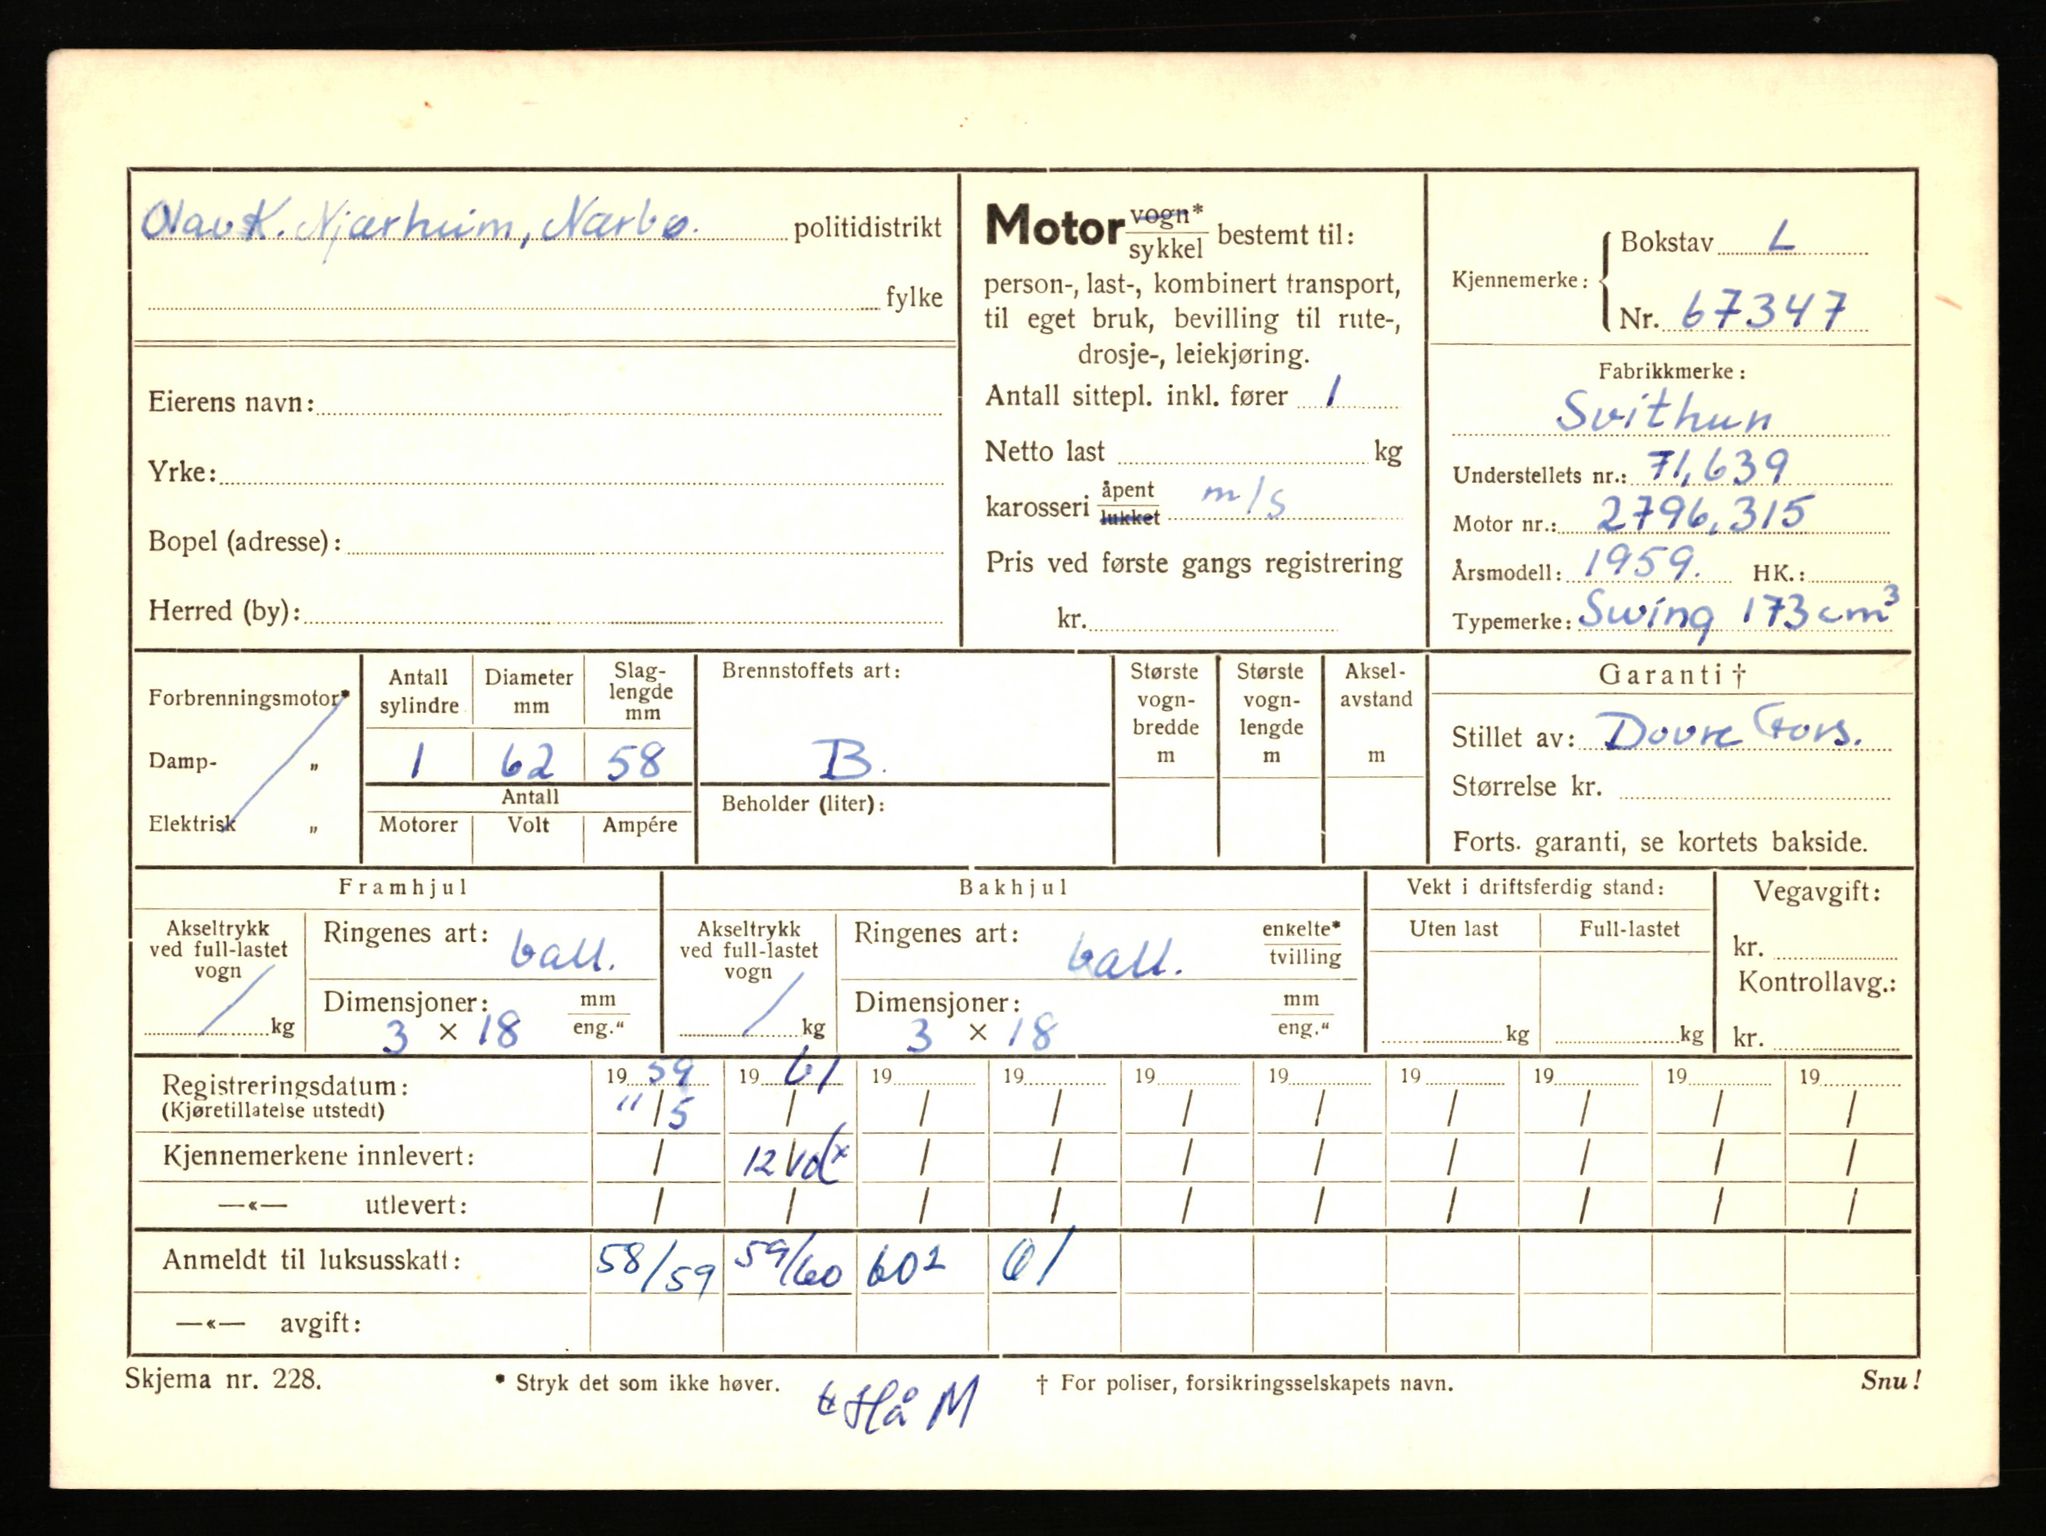 Olav K. Njærheim, Nærbø. politidistrikt
fylke
Eierens navn:
Yrke:
Bopel (adresse):
Herred (by):
Motor vogn* sykkel bestemt til:
person-, last-, kombinert transport,
til eget bruk, bevilling til rute-,
drosje-, leiekjøring.
Antall sittepl. inkl. fører 1
Netto last kg
karosseri åpent lukket m/s
Pris ved første gangs registrering
kr.
Kjennemerke: Bokstav L
Nr. 67347
Fabrikkmerke:
Svithun
Understellets nr.: 71,639
Motor nr.: 2796,315
Årsmodell: 1959. HK.:
Typemerke: Swing 173 cm³
Forbrenningsmotor*
Damp- „
Elektrisk „
Antall sylindre Diameter mm Slag-lengde mm
1 62 58
Antall
Motorer Volt Ampére
Brennstoffets art:
B.
Beholder (liter):
Største vogn-bredde m
Største vogn-lengde m
Aksel-avstand m
Garanti †
Stillet av: Dovre Fors.
Størrelse kr.
Forts. garanti, se kortets bakside.
Framhjul
Akseltrykk ved full-lastet vogn
kg
Ringenes art: ball.
Dimensjoner: mm eng."
3 × 18
Bakhjul
Akseltrykk ved full-lastet vogn
kg
Ringenes art: ball. enkelte* tvilling
Dimensjoner: mm eng."
3 × 18
Vekt i driftsferdig stand:
Uten last Full-lastet
kg kg
Vegavgift:
kr.
Kontrollavg.:
kr.
Registreringsdatum: 19 59 19 61 19 19 19 19 19 19 19 19
(Kjøretillatelse utstedt) "/5 / / / / / / / / /
Kjennemerkene innlevert: / 12/10 x / / / / / / / /
—«— utlevert: / / / / / / / / / /
Anmeldt til luksusskatt: 58/59 59/60 602 61
—«— avgift:
Skjema nr. 228. * Stryk det som ikke høver. † For poliser, forsikringsselskapets navn. Snu!
Hå M